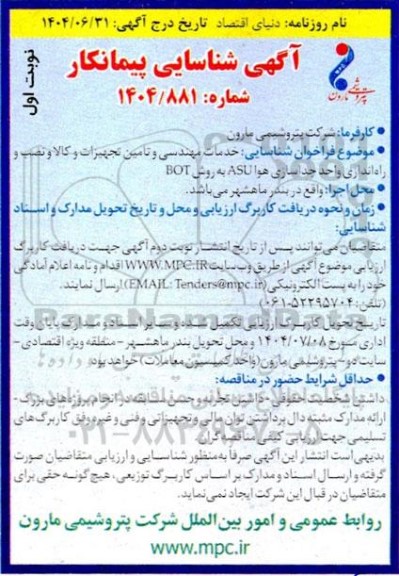 نام روزنامه: دنیای اقتصاد تاریخ درج آگهی: ۱۴۰۴/۰۶/۳۱
نوبت اول
پتروشیمی مارون
آگهی شناسایی پیمانکار
شماره: ۱۴۰۴/۸۸۱
● کارفرما: شرکت پتروشیمی مارون
● موضوع فراخوان شناسایی: خدمات مهندسی و تامین تجهیزات و کالا و نصب و
راه‌اندازی واحد جداسازی هوا ASU به روش BOT
● محل اجرا: واقع در بندر ماهشهر می‌باشد.
● زمان و نحوه دریافت کاربرگ ارزیابی و محل و تاریخ تحویل مدارک و اسناد
شناسایی:
متقاضیان می‌توانند پس از تاریخ انتشار نوبت دوم آگهی جهت دریافت کاربرگ
ارزیابی موضوع آگهی از طریق وب‌سایت WWW.MPC.IR اقدام و نامه اعلام آمادگی
خود را به پست الکترونیکی (EMAIL: Tenders@mpc.ir) ارسال نمایند.
(تلفن: ۰۶۱-۵۲۲۹۵۷۰۴)
تاریخ تحویل کاربرگ ارزیابی تکمیل شده و سایر اسناد و مدارک پایان وقت
اداری مورخ ۱۴۰۴/۰۷/۰۸ و محل تحویل بندر ماهشهر - منطقه ویژه اقتصادی -
سایت دو - پتروشیمی مارون (واحد کمیسیون معاملات) خواهد بود.
● حداقل شرایط حضور در مناقصه:
داشتن شخصیت حقوقی - داشتن تجربه و حسن سابقه در انجام پروژه‌های بزرگ -
ارائه مدارک مثبته دال بر داشتن توان مالی و تجهیزاتی و فنی و غیره وفق کاربرگ‌های
تسلیمی جهت ارزیابی کیفی مناقصه‌گران
بدیهی است انتشار این آگهی صرفاً به‌منظور شناسایی و ارزیابی متقاضیان صورت
گرفته و ارسال اسناد و مدارک بر اساس کاربرگ توزیعی، هیچ‌گونه حقی برای
متقاضیان در قبال این شرکت ایجاد نمی‌نماید.
روابط عمومی و امور بین‌الملل شرکت پتروشیمی مارون
www.mpc.ir